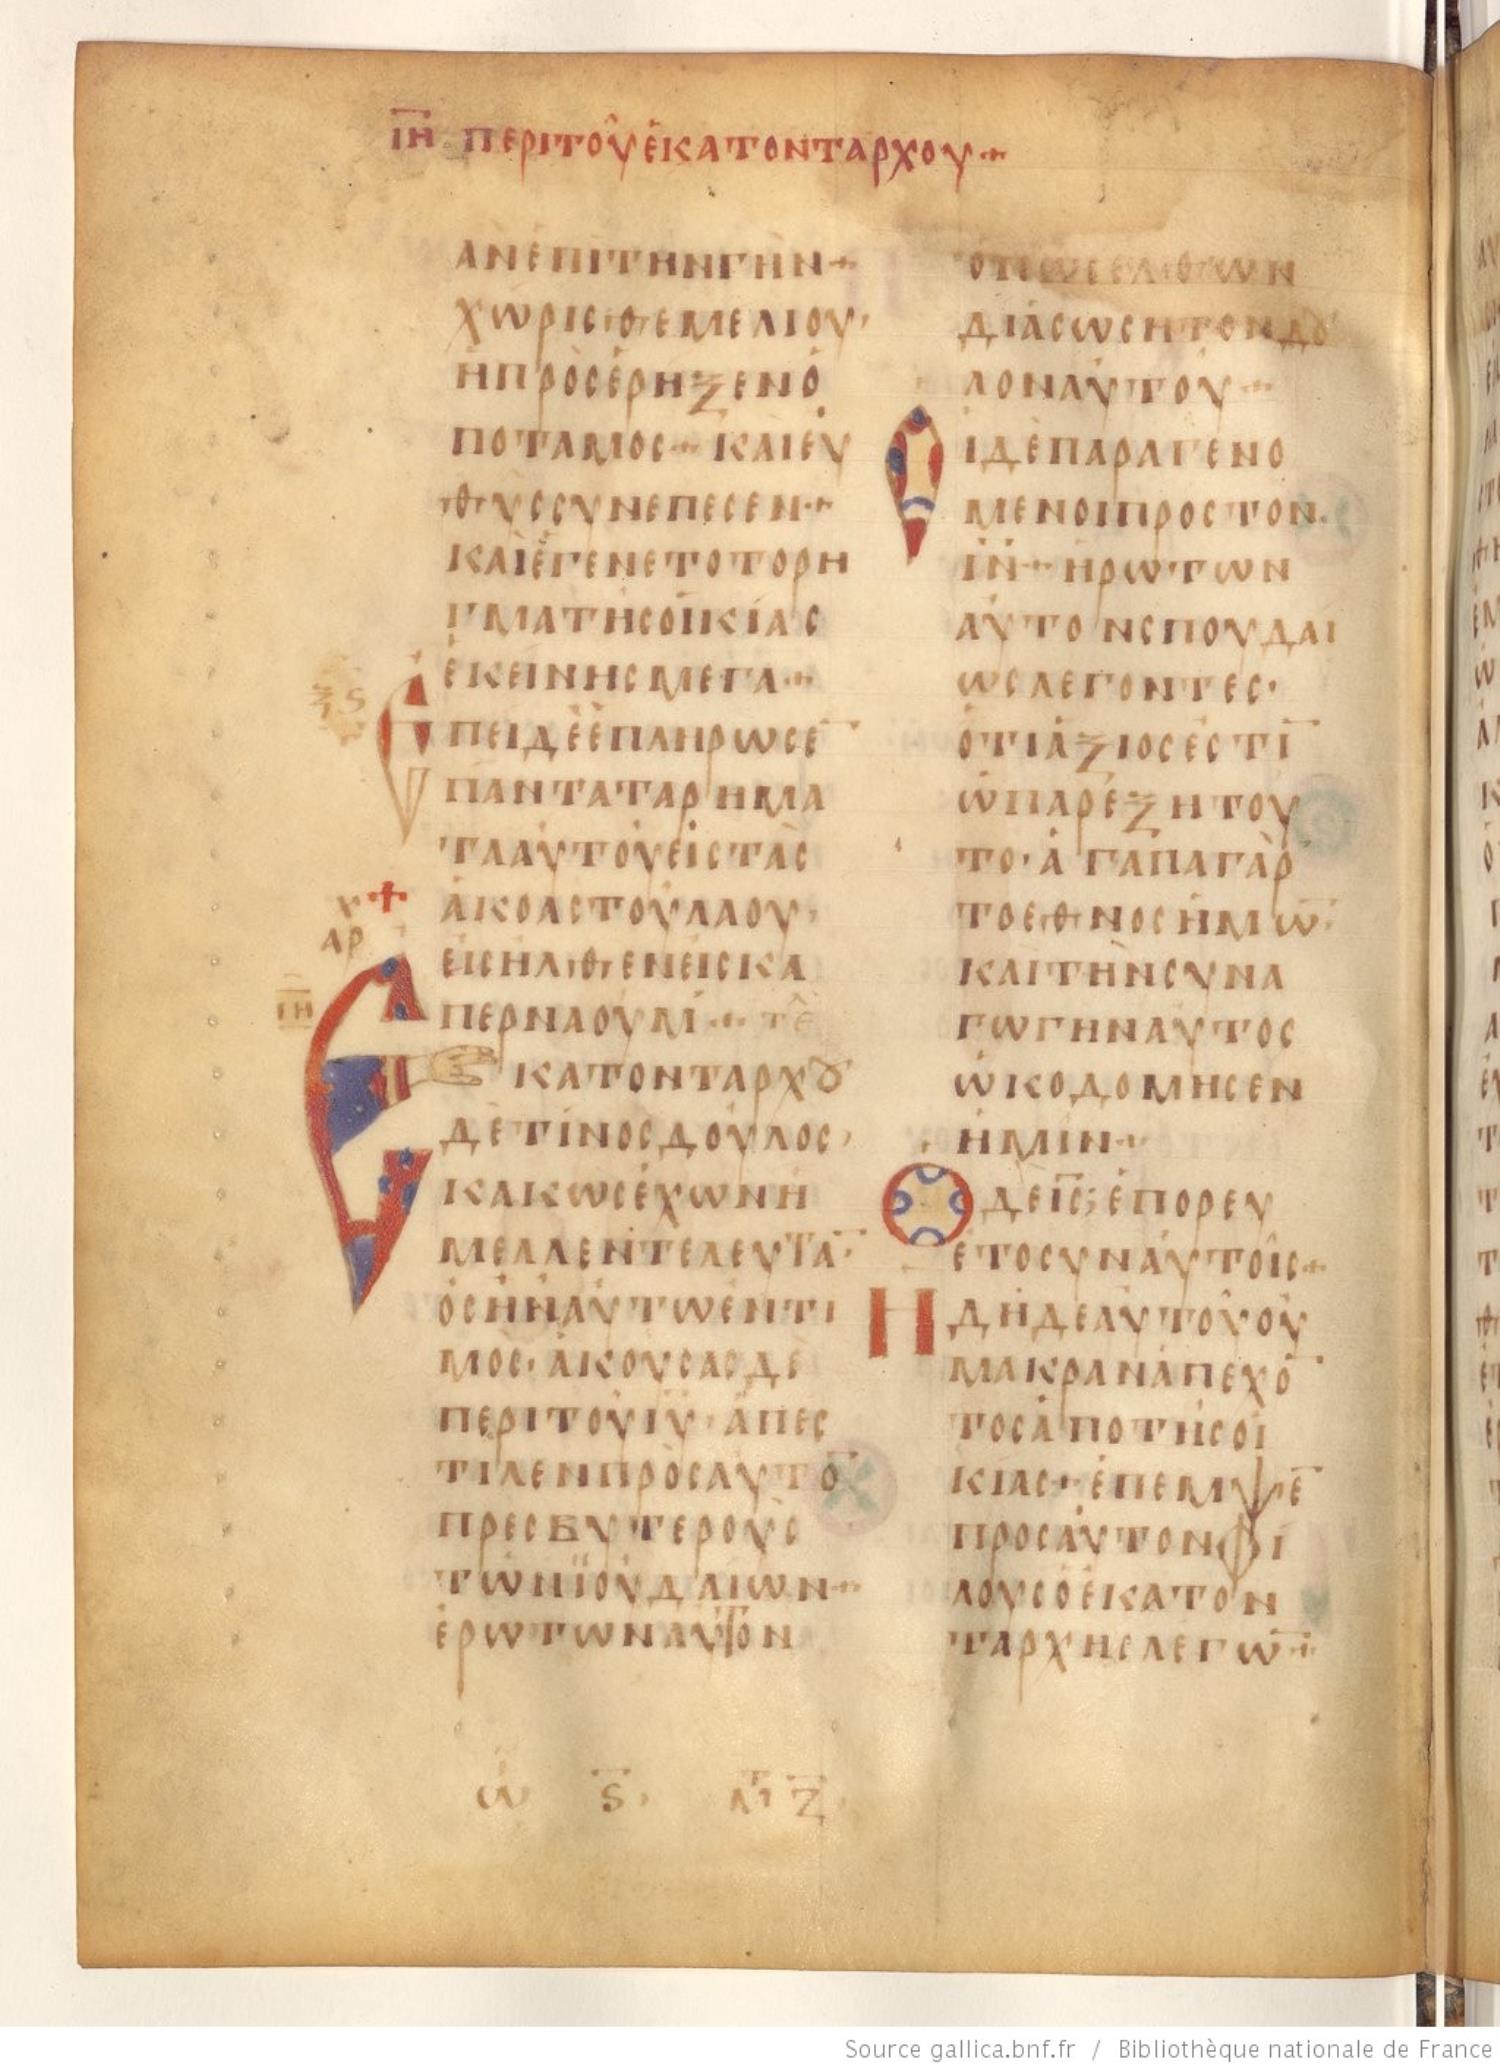 ΙΗ ΠΕΡΙ ΤΟΥ ΕΚΑΤΟΝΤΑΡΧΟΥ
ΑΝ ΕΠΙ ΤΗΝ ΓΗΝ
ΧΩΡΙΣ ΘΕΜΕΛΙΟΥ·
Η ΠΡΟΣΕΡΗΞΕΝ Ο
ΠΟΤΑΜΟΣ ΚΑΙ ΕΥ
ΘΥΣ ΣΥΝΕΠΕΣΕΝ
ΚΑΙ ΕΓΕΝΕΤΟ ΤΟ ΡΗ
ΓΜΑ ΤΗΣ ΟΙΚΙΑΣ
ΕΚΕΙΝΗΣ ΜΕΓΑ
ΕΠΕΙ ΔΕ ΕΠΛΗΡΩΣΕ̅
ΠΑΝΤΑ ΤΑ ΡΗΜΑ
ΤΑ ΑΥΤΟΥ ΕΙΣ ΤΑΣ
ΑΚΟΑΣ ΤΟΥ ΛΑΟΥ·
ΑΡ
ΕΙΣΗΛΘΕΝ ΕΙΣ ΚΑ
ΙΗ
ΠΕΡΝΑΟΥΜ
ΕΚΑΤΟΝΤΑΡΧȢ
ΔΕ ΤΙΝΟΣ ΔΟΥΛΟΣ
ΚΑΚΩΣ ΕΧΩΝ Η
ΜΕΛΛΕΝ ΤΕΛΕΥΤΑ̅·
ΟΣ ΗΝ ΑΥΤΩ ΕΝΤΙ
ΜΟΣ· ΑΚΟΥΣΑΣ ΔΕ
ΠΕΡΙ ΤΟΥ ΙΥ· ΑΠΕΣ
ΤΙΛΕΝ ΠΡΟΣ ΑΥΤΟ̅
ΠΡΕΣΒΥΤΕΡΟΥΣ
ΤΩΝ ΙΟΥΔΑΙΩΝ
ΕΡΩΤΩΝ ΑΥΤΟΝ
ΕΛΘΩΝ
ΔΙΑΣΩΣΗ ΤΟΝ ΔȢ
ΛΟΝ ΑΥΤΟΥ
ΟΙ ΔΕ ΠΑΡΑΓΕΝΟ
ΜΕΝΟΙ ΠΡΟΣ ΤΟΝ
ΙΝ ΗΡΩΤΩΝ
ΑΥΤΟΝ ΣΠΟΥΔΑΙ
ΩΣ ΛΕΓΟΝΤΕΣ·
ΟΤΙ ΑΞΙΟΣ ΕΣΤΙ̅
Ω ΠΑΡΕΞΗ ΤΟΥ
ΤΟ· ΑΓΑΠΑ ΓΑΡ
ΤΟ ΕΘΝΟΣ ΗΜΩ̅·
ΚΑΙ ΤΗΝ ΣΥΝΑ
ΓΩΓΗΝ ΑΥΤΟΣ
ΩΚΟΔΟΜΗΣΕΝ
ΗΜΙΝ
Ο ΔΕ ΙΣ ΕΠΟΡΕΥ
ΕΤΟ ΣΥΝ ΑΥΤΟΙΣ
ΗΔΗ ΔΕ ΑΥΤΟΥ ΟΥ
ΜΑΚΡΑΝ ΑΠΕΧΟ̅
ΤΟΣ ΑΠΟ ΤΗΣ ΟΙ
ΚΙΑΣ ΕΠΕΜΨΕ̅
ΠΡΟΣ ΑΥΤΟΝ ΦΙ
ΛΟΥΣ Ο ΕΚΑΤΟΝ
ΤΑΡΧΗΣ ΛΕΓΩ̅
Source gallica.bnf.fr / Bibliothèque nationale de France